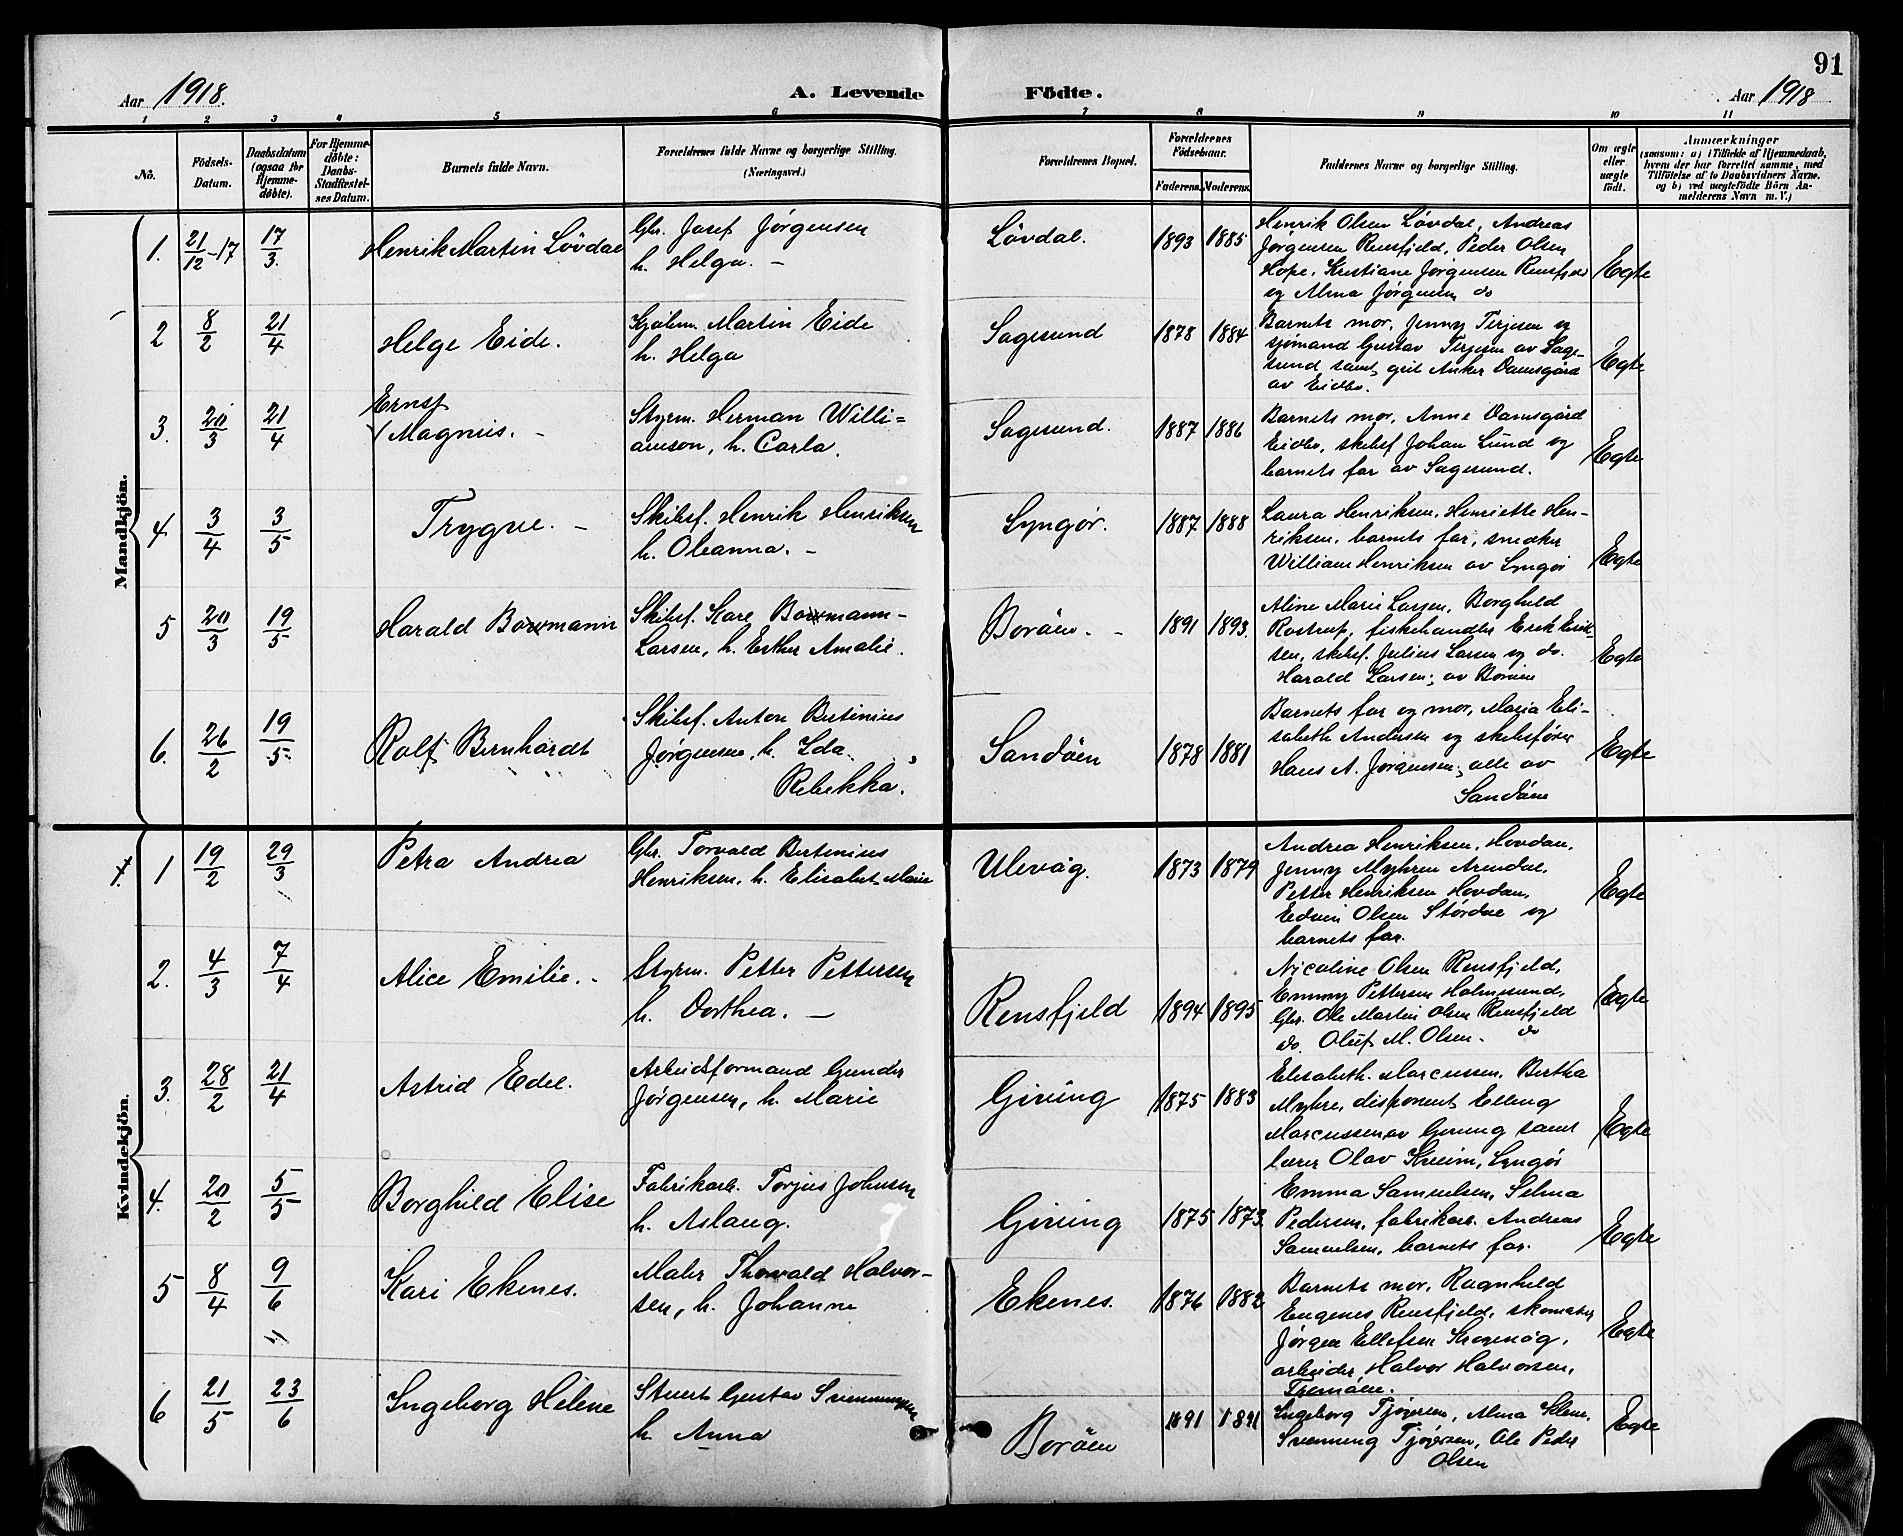 91
Aar 1918.
A. Levende
Födte.
Aar 1918
1 2 3 4 5 6 7 8 9 10 11
No.
Födsels-Datum.
Daabsdatum (ogsaa for Hjemmedöbte).
For Hjemmedöbte: Daabs-Stadfæstelses Datum.
Barnets fulde Navn.
Forældrenes fulde Navne og borgerlige Stilling.
(Næringsvei.)
Forældrenes Bopæl.
Forældrenes Födselsaar.
Faderens. Moderens.
Faddernes Navne og borgerlige Stilling.
Om ægte eller uægte födt.
Anmærkninger
(saasom: a) i Tilfælde af Hjemmedaab,
hvem der har forrettet samme, med
Tilföielse af to Daabsvidners Navne.
og b) ved uægtefödte Börn An-
melderens Navn m. V.)
Mandkjön.
1. 21/12-17 17/3. Henrik Martin Lövdal
Gbr. Josef Jørgensen
h. Helga. -
Lövdal. 1893 1885
Henrik Olsen Lövdal, Andreas
Jørgensen Rensfjeld, Peder Olsen
Hope, Kristiane Jørgensen Rensfjeld
og Alma Jørgensen do
Egte
2 8/2 21/4 Helge Eide.
Martin Eide
h. Helga
Sagesund 1878 1884
Barnets mor, Jenny Terjesen og
sjømand Gustav Terjesen av Sage-
sund samt Anker Damsgård
av Eidbo.
Egte
3. 20/3 21/4 Ernst
Magnus. -
Styrm. Herman Willi=
amson, h. Carla.
Sagesund. 1887 1886
Barnets mor, Anne Damsgård
Eidbo, skibsf Johan Lund og
barnets far av Sagesund.
Egte
4 3/4 3/5 Trygve. -
Skibsf. Henrik Henriksen
h. Oleanna. -
Lyngör. 1887 1888
Laura Henriksen, Henriette Hen-
riksen, barnets far, snedker
William Henriksen av Lyngör
Egte
5 20/3 19/5 Harald Bowmann
Skibsf. Kare Bowmann-
Larsen, h. Esther Amalie.
Boröen. - 1891 1893.
Aline Marie Larsen, Borghild
Rostrup, fiskehandler Erik Erik-
sen, skibsf. Julius Larsen og do.
Harald Larsen, av Boröen
Egte
6. 26/2 19/5 Rolf Bernhardt
Skibsf. Anton Bertinius
Jørgensen, h. Ida
Rebekka.
Sandöen 1878 1881
Barnets far og mor, Maria Eli-
sabeth Andersen og skibsfører
Hans A. Jørgensen, alle av
Sandöen
Egte
Kvindekjön.
1 19/2 29/3 Petra Andrea
Gbr. Torvald Bertinius
Henriksen, h. Elisabet Marie
Ulevåg. 1873 1879
Andrea Henriksen, Hovdan,
Jenny Myhren Arendal,
Petter Henriksen Hovdan,
Edvin Olsen Stördal og
barnets far.
Egte
2. 4/3 7/4 Alice Emilie. -
Styrm. Petter Pettersen
h. Dorthea. -
Rensfjeld 1894 1895
Nicoline Olsen Rensfjeld,
Emmy Pettersen Holmesund,
Gbr. Ole Martin Olsen Rensfjeld
do. Oluf M. Olsen. do
Egte
3. 28/2 21/4 Astrid Edel.
Arbeidsformand Gunder
Jørgensen, h. Marie
Giving 1875 1883
Elisabeth Marcussen, Bertha
Myhre, disponent Elling
Marcussen av Giving samt
lærer Olav Kveim, Lyngör
Egte
4. 20/2 5/5 Borghild Elise
Fabrikarb. Torjus Johnsen
h. Aslaug.
Giving 1875 1873
Emma Samuelsen, Selma
Pedersen, fabrikarb. Andreas
Samuelsen, barnets far.
Egte
5 8/4 9/6 Kari Ekenes.
Maler Thorvald Halvor-
sen, h. Johanne
Ekenes. 1876 1882
Barnets mor, Ragnhild
Eugenes Rensfjeld, skomaker
Jørgen Ellefsen
arbeider Halvor Halvorsen,
Tremöen.
Egte
6 21/5 23/6 Ingeborg Helene
Stuert Gustav Svenningsen
h. Anna
Boröen 1891 1891
Ingeborg Tjøvesen, Alma
Svenning Tjøvesen, Ole Peder
Olsen
Egte